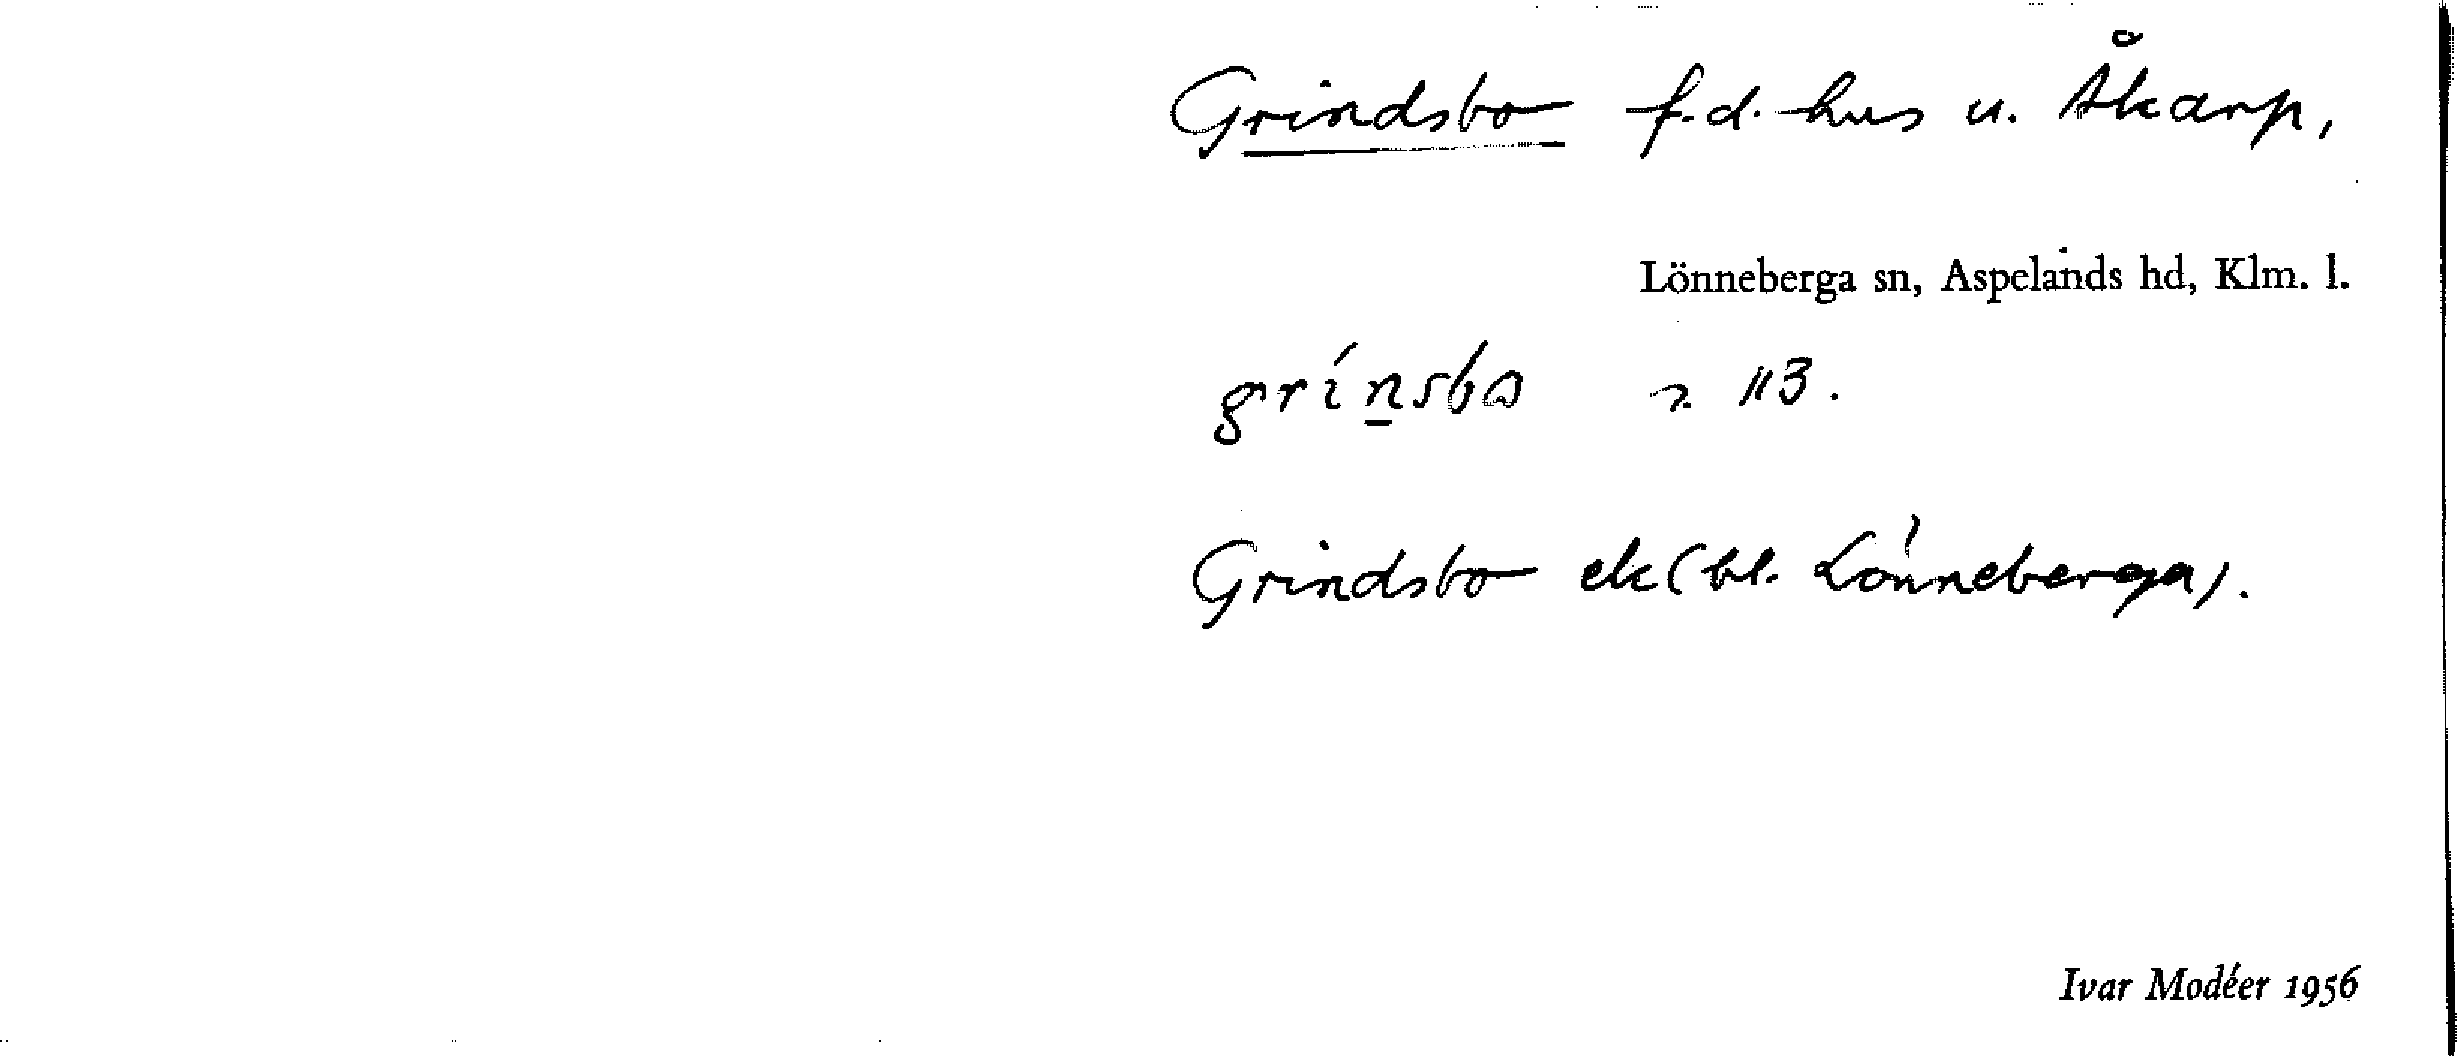 Grindsbo f.d. hus u. Åkarp,
Lönneberga sn, Aspelands hd, Klm. l.
grínsbo 113.
Grindsbo ek (bl. Lönneberga).
Ivar Modéer 1956